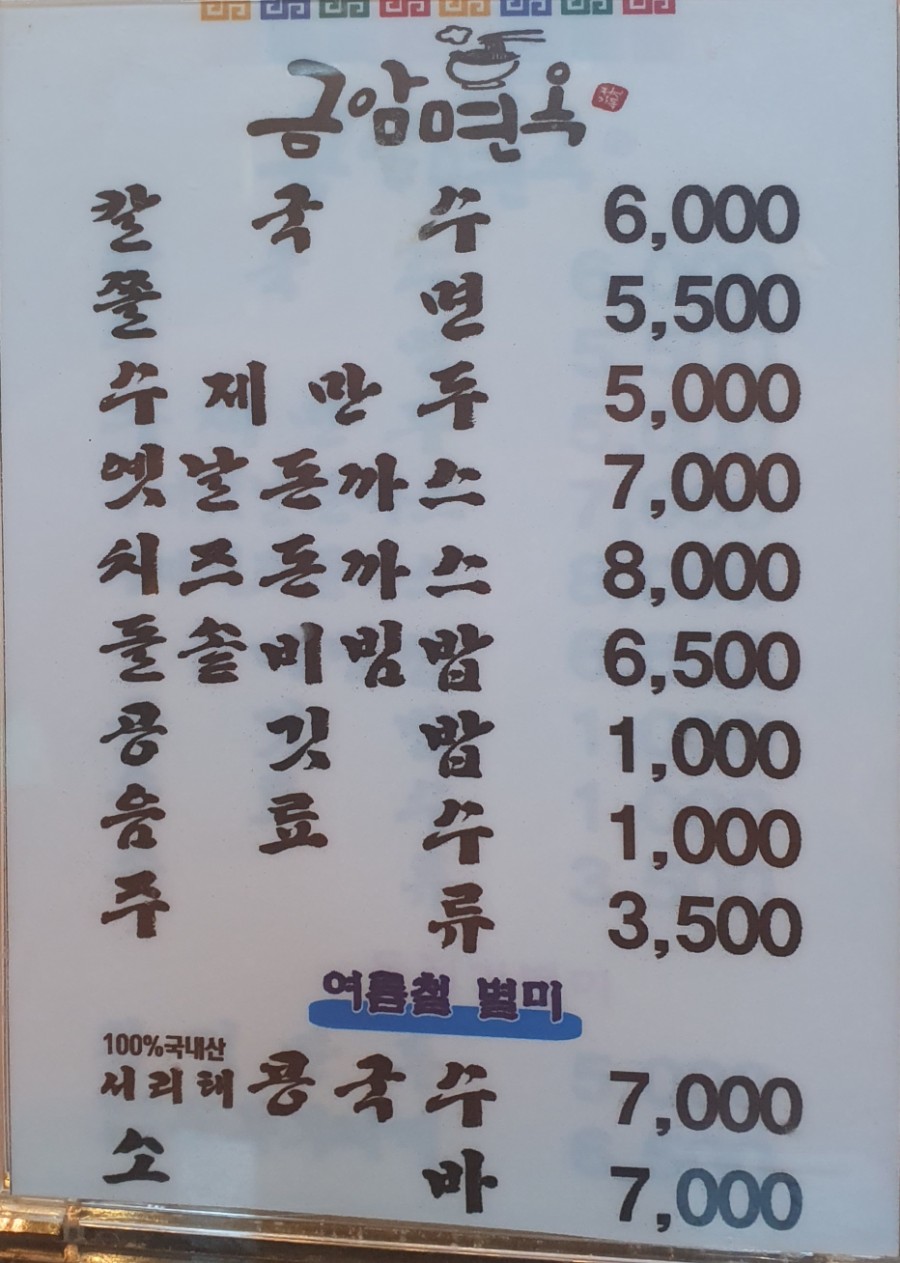 금암면옥
칼국수 6,000
쫄면 5,500
수제만두 5,000
옛날돈까스 7,000
치즈돈까스 8,000
돌솥비빔밥 6,500
공깃밥 1,000
음료수 1,000
주류 3,500
여름철 별미
100%국내산
서리태콩국수 7,000
소바 7,000